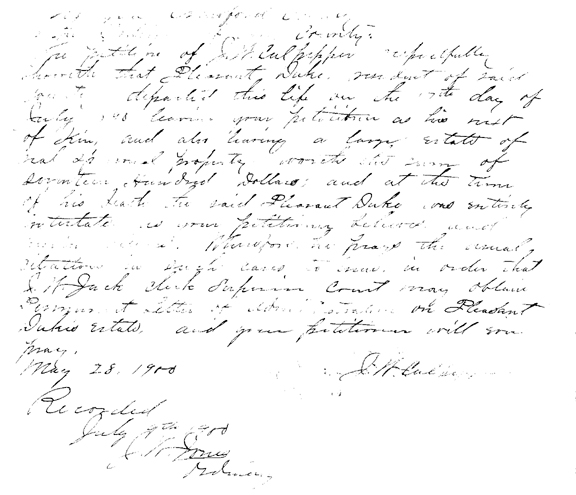 Crawford County
County:
The petition of J. W. Culpepper respectfully
showeth that Pleasant Duke resident of said
county departed this life on the day of
July leaving your petitioner as his next
of Kin, and also leaving a large Estate of
real & personal property worth the sum of
Seventeen Hundred Dollars; and at the time
of his death the said Pleasant Duke was entirely
intestate as your petitioner believes and
Wherefore he prays the usual
citations in such cases to issue in order that
J. W. Jack clerk Superior Court may obtain
Permanent letters of Administration on Pleasant
Dukes Estate. and your petitioner will ever
pray.
May 28. 1900 J. W. Culpepper
Recorded
July 9th 1900
J. W. Jones
Ordinary